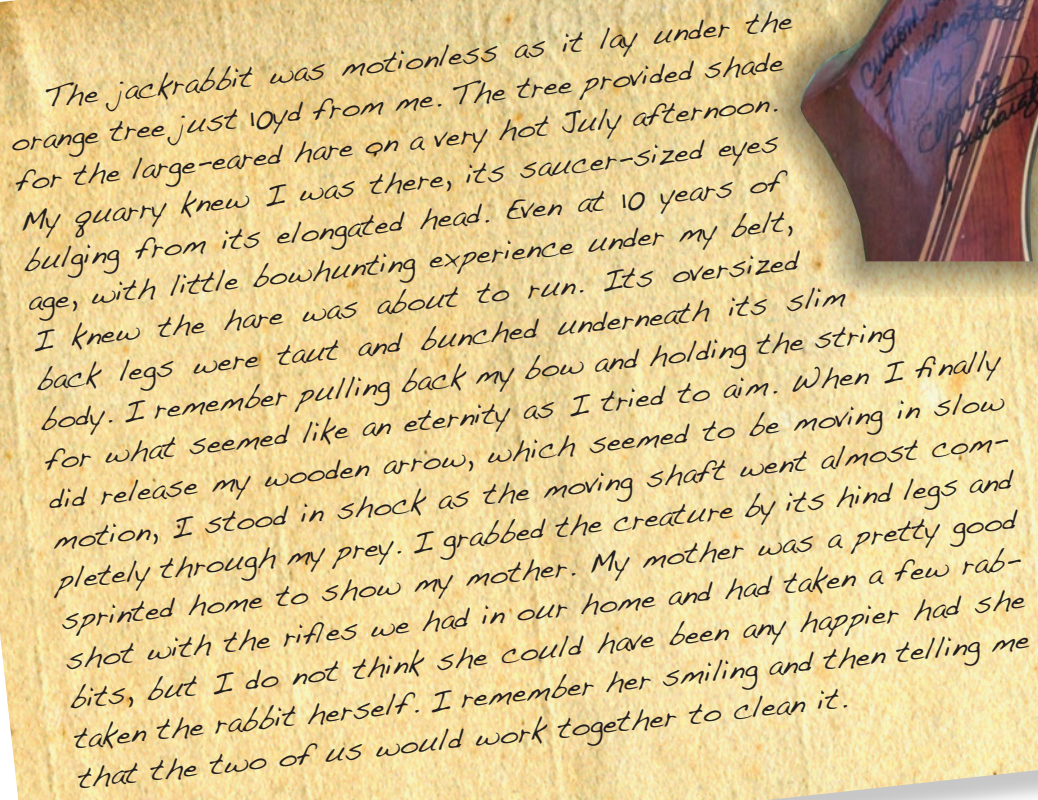 The jackrabbit was motionless as it lay under the
orange tree just 10yd from me. The tree provided shade
for the large-eared hare on a very hot July afternoon.
My quarry knew I was there, its saucer-sized eyes
bulging from its elongated head. Even at 10 years of
age, with little bowhunting experience under my belt,
I knew the hare was about to run. Its oversized
back legs were taut and bunched underneath its slim
body. I remember pulling back my bow and holding the string
for what seemed like an eternity as I tried to aim. When I finally
did release my wooden arrow, which seemed to be moving in slow
motion, I stood in shock as the moving shaft went almost com-
pletely through my prey. I grabbed the creature by its hind legs and
sprinted home to show my mother. My mother was a pretty good
shot with the rifles we had in our home and had taken a few rab-
bits, but I do not think she could have been any happier had she
taken the rabbit herself. I remember her smiling and then telling me
that the two of us would work together to clean it.
Custom
by